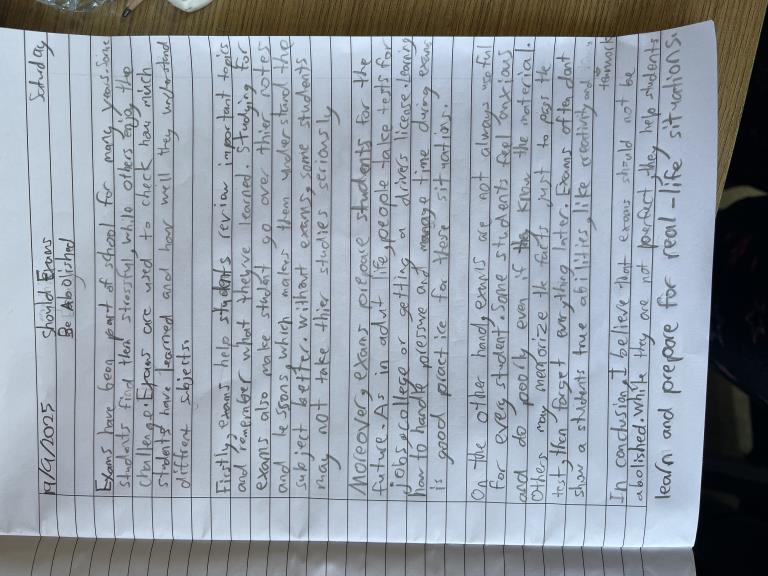 19/9/2025 Should Exams Saturday
Be Abolished
Exams have been part of school for many years. Some
students find them stressful, while others enjoy the
challenge. Exams are used to check how much
students have learned and how well they understand
different subjects.
Firstly, exams help students review important topics
and remember what theyve learned. Studying for
exams also make student go over thier notes
and lessons, which makes them understand the
subject better. Without exams, some students
may not take thier studies seriously
Moreover, exams prepare students for the
future. As in adult life, people take tests for
jobs, college or getting a drivers license. Learning
how to handle pressure and manage time during exams
is good practice for those situations.
On the other hand, exams are not always useful
for every student. Some students feel anxious
and do poorly even if they know the material.
Others may memorize the facts just to pass the
test, then forget everything later. Exams often dont
show a students true abilities, like creativity and
teamwork
In conclusion, I believe that exams should not be
abolished. While they are not perfect, they help students
learn and prepare for real-life situations.